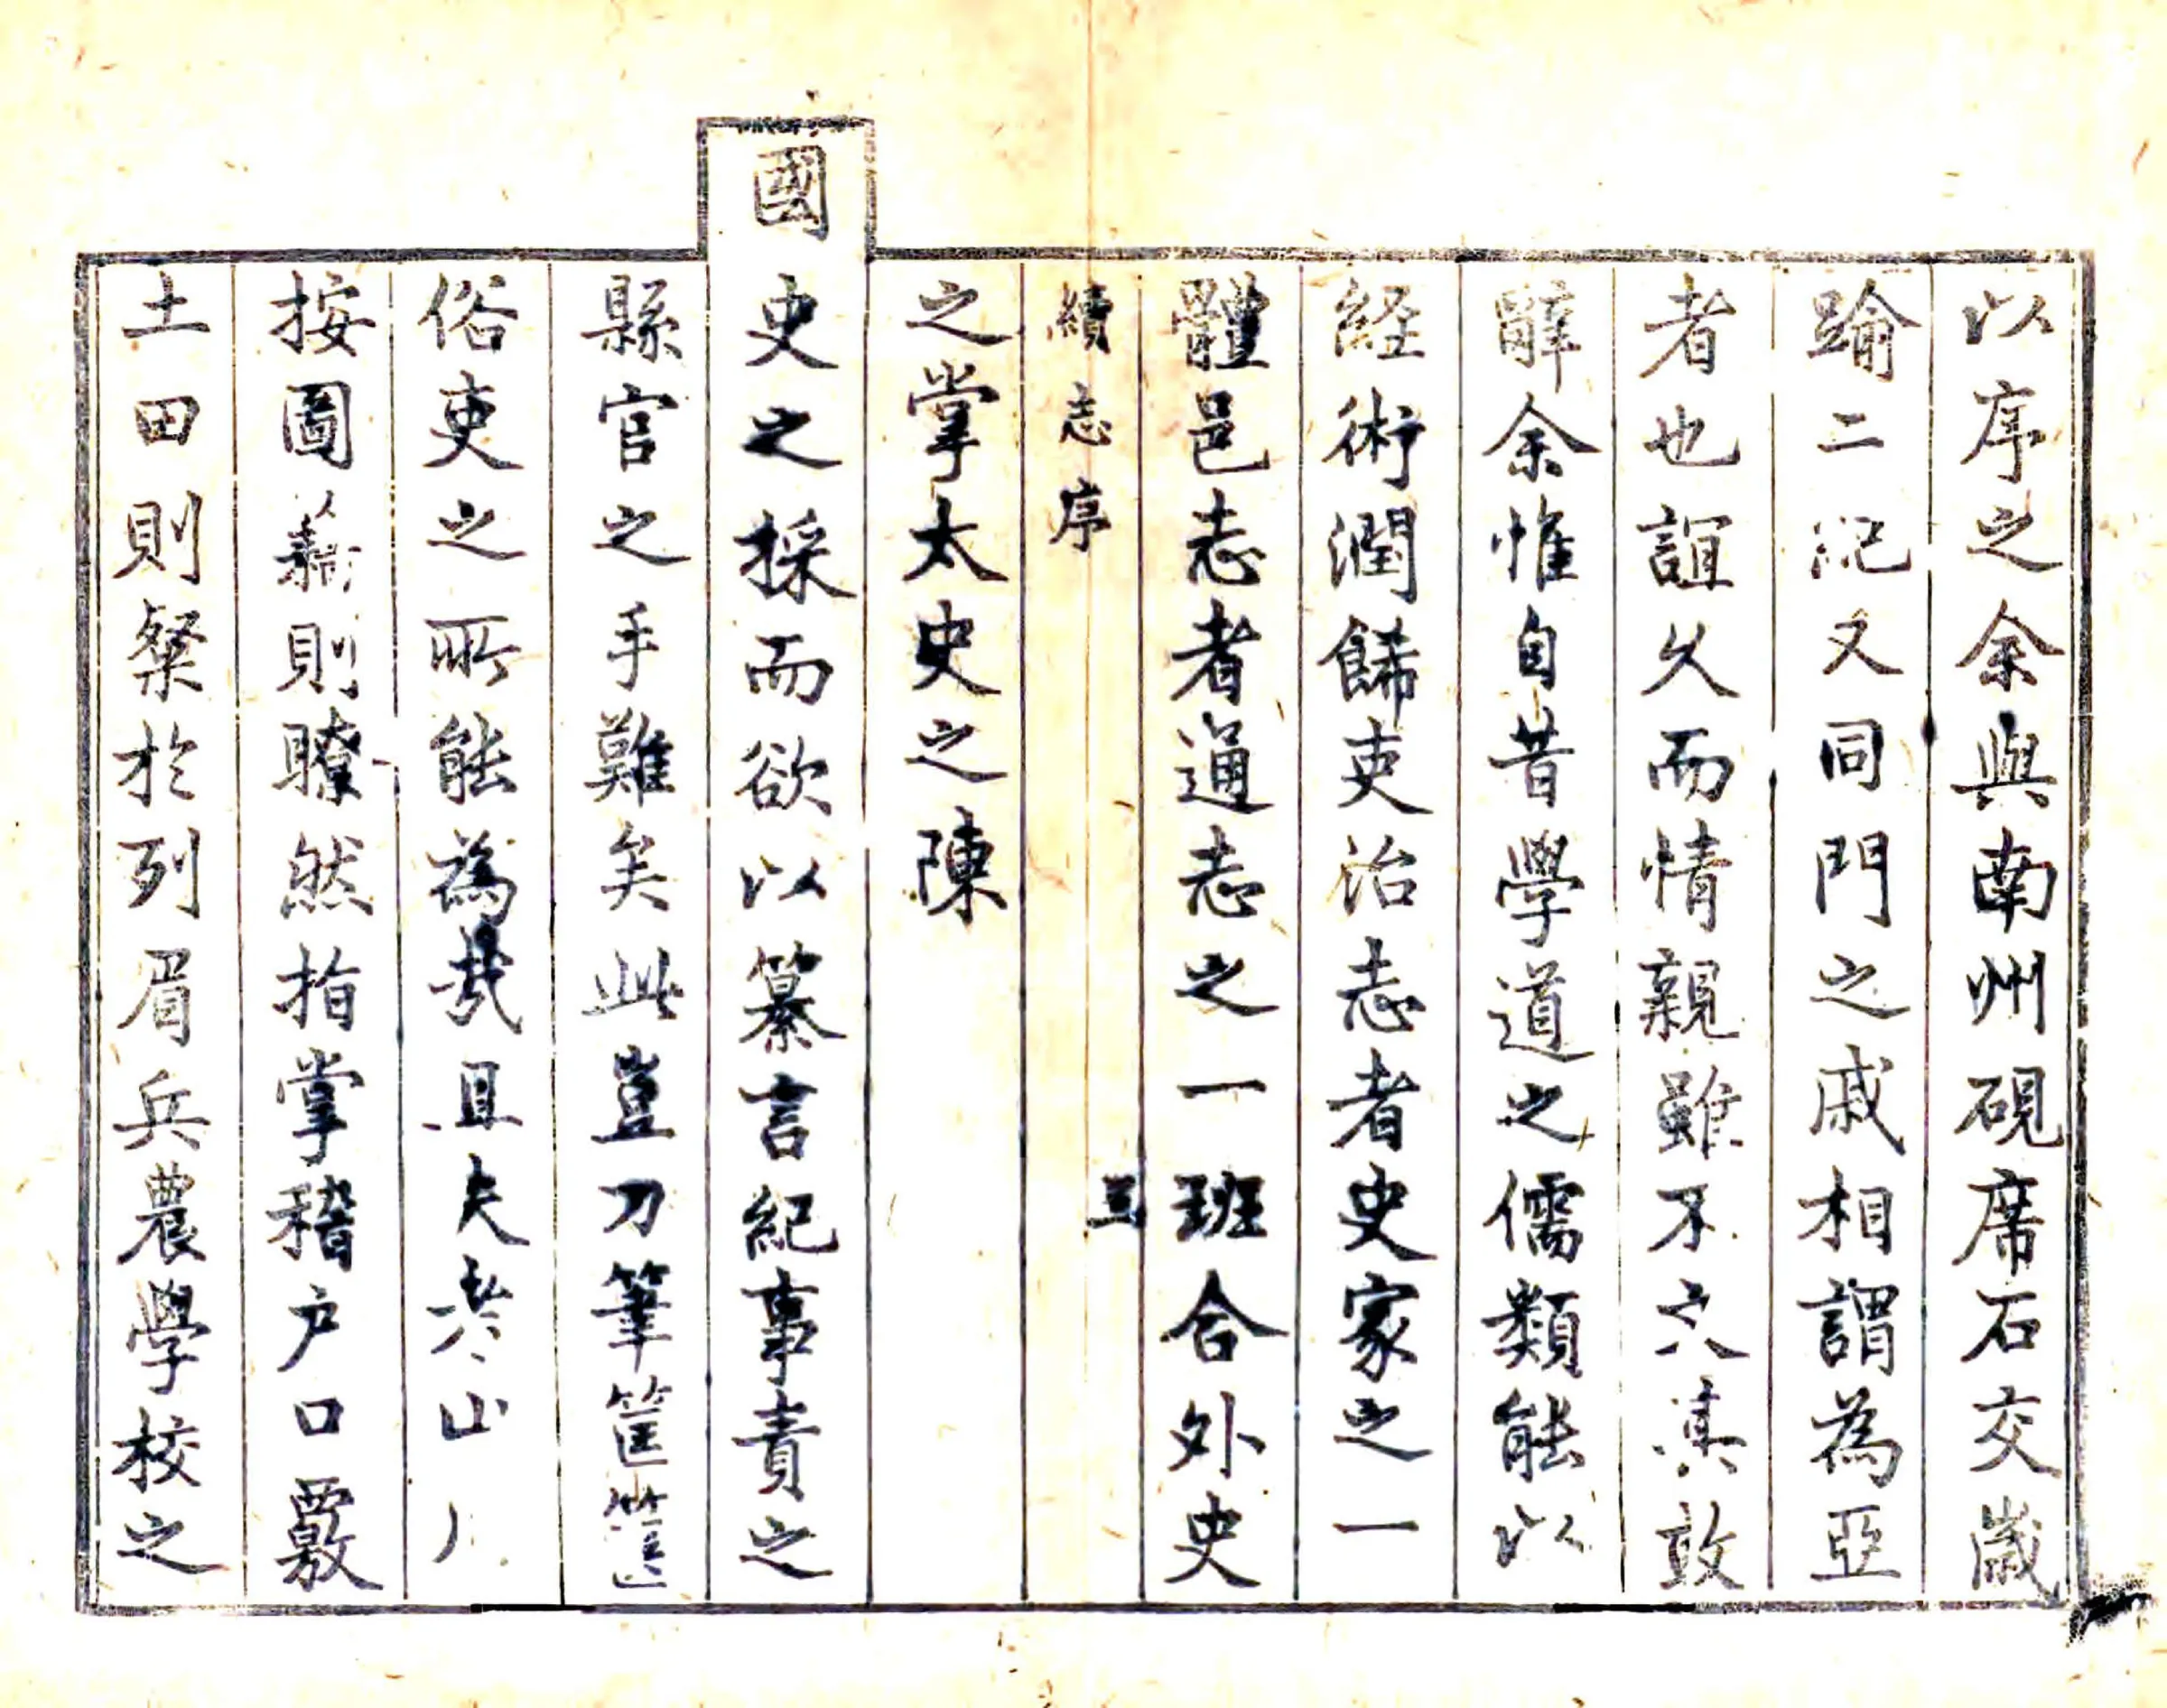 以序之余與南州硯席石交歲
踰二紀又同門之戚相謂為亞
者也誼久而情親雖不六其敢
辭余惟自昔學道之儒類能以
経術潤餙吏治志者史家之一
體邑志者通志之一班合外史
續志序 三
之掌太史之陳
國史之採而欲以纂言紀事責之
縣官之手難矣此豈刀筆筐篋
俗吏之所能為哉且夫考山川
按圖籍則瞭然指掌稽户口覈
土田則粲於列眉兵農學校之